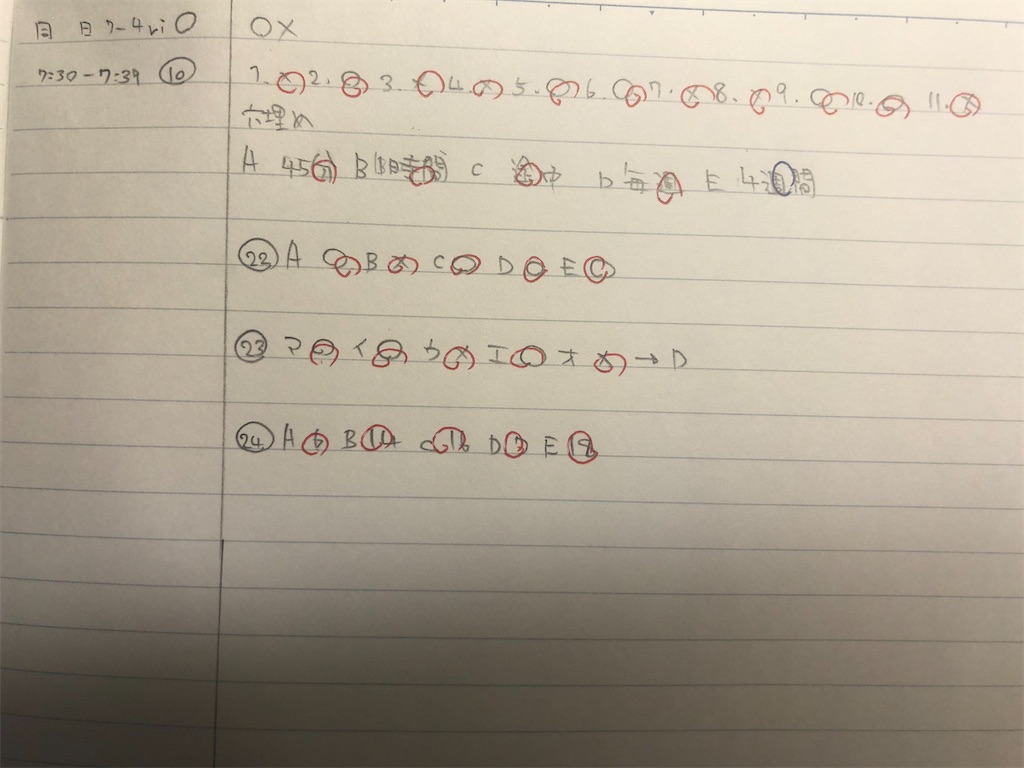 ○×
7:30-7:39 ⑩
1. × 2. ○ 3. 4. × 5. ○ 6. ○ 7. × 8. 9. ○ 10. ○ 11. ×
穴埋め
A 45分 B 1時間 C 途中 D 毎週 E 4週間
㉒ A ○ B × C ○ D ○ E ○
㉓ ア ○ イ ○ ウ × エ ○ オ × → D
㉔ A 6 B C 16 D 3 E 18